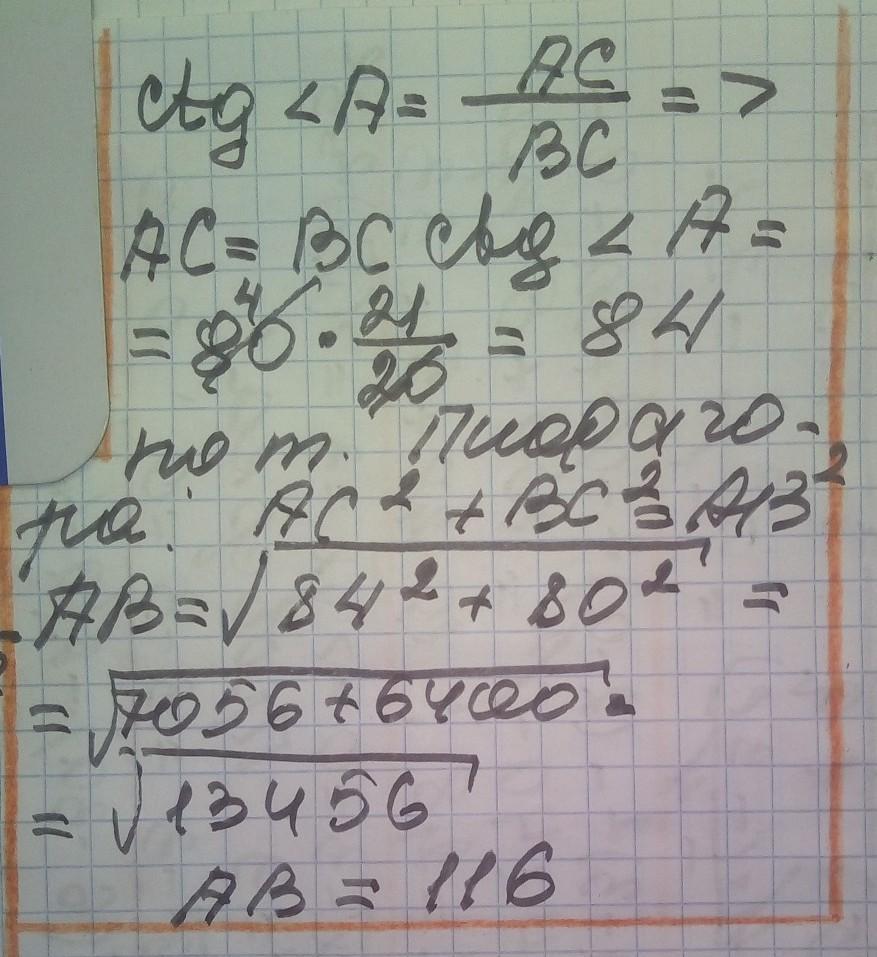 ctg < A = AC / BC = >
AC = BC ctg < A =
= 80 4 · 21 / 20 = 84
по т. Пифаго-
ра: AC² + BC² = AB²
AB = √84² + 80² =
= √7056 + 6400 =
= √13456
AB = 116